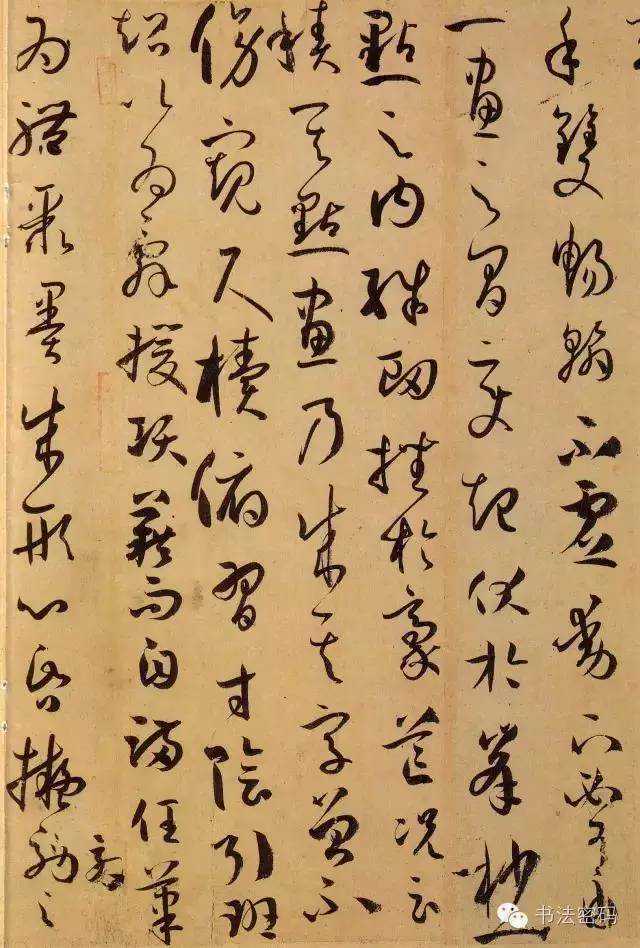 手雙暢翰不虛動下必有由
一畫之間變起伏於峯杪一
點之内殊衄挫於豪芒況云
積其點畫乃成其字曾不
傍窺尺牘俯習寸陰引班
超以為辭援項籍而自滿任筆
為體聚墨成形心昏擬効之
书法密码